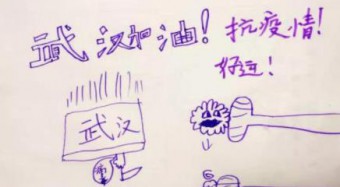 武汉加油！抗疫情！
好运！
武汉